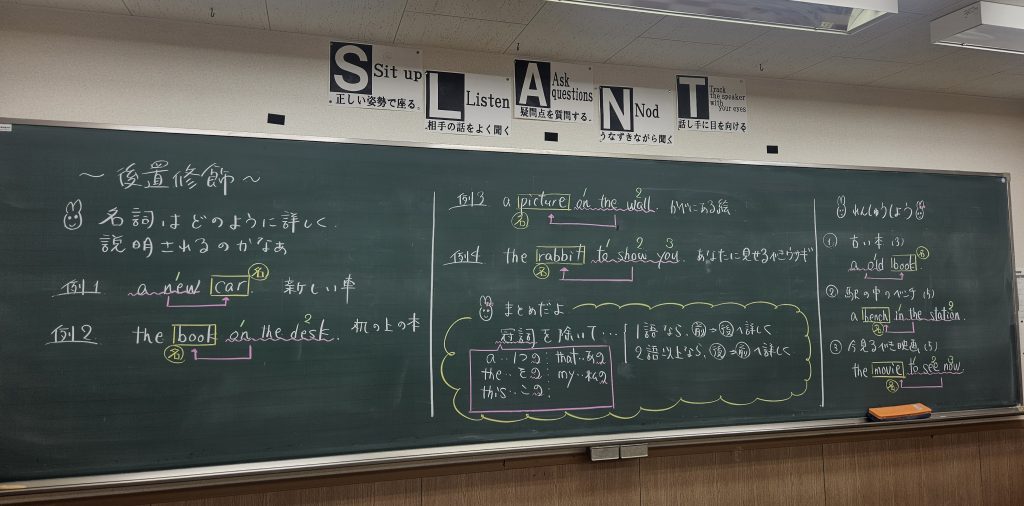 S Sit up
正しい姿勢で座る.
L Listen
相手の話をよく聞く
A Ask questions
疑問点を質問する.
N Nod
うなずきながら聞く
T Track the speaker with your eyes
話し手に目を向ける
～後置修飾～
名詞はどのように詳しく
説明されるのかなぁ
例1 a new car 新しい車
1 名
例2 the book on the desk. 机の上の本
名 1 2
例3 a picture on the wall. かべにある絵
名 1 2
例4 the rabbit to show you. あなたに見せるべきウサギ
名 1 2 3
まとめだよ
冠詞を除いて…
1語なら、前⇒後へ詳しく
2語以上なら、後⇒前へ詳しく
a…1つの: that…あの
the…その: my…私の
this…この:
れんしゅうしよう
① 古い本 (3)
a old book.
1 名
② 駅の中のベンチ (5)
a bench in the station.
名 1 2
③ 今見るべき映画 (5)
the movie to see now.
名 1 2 3